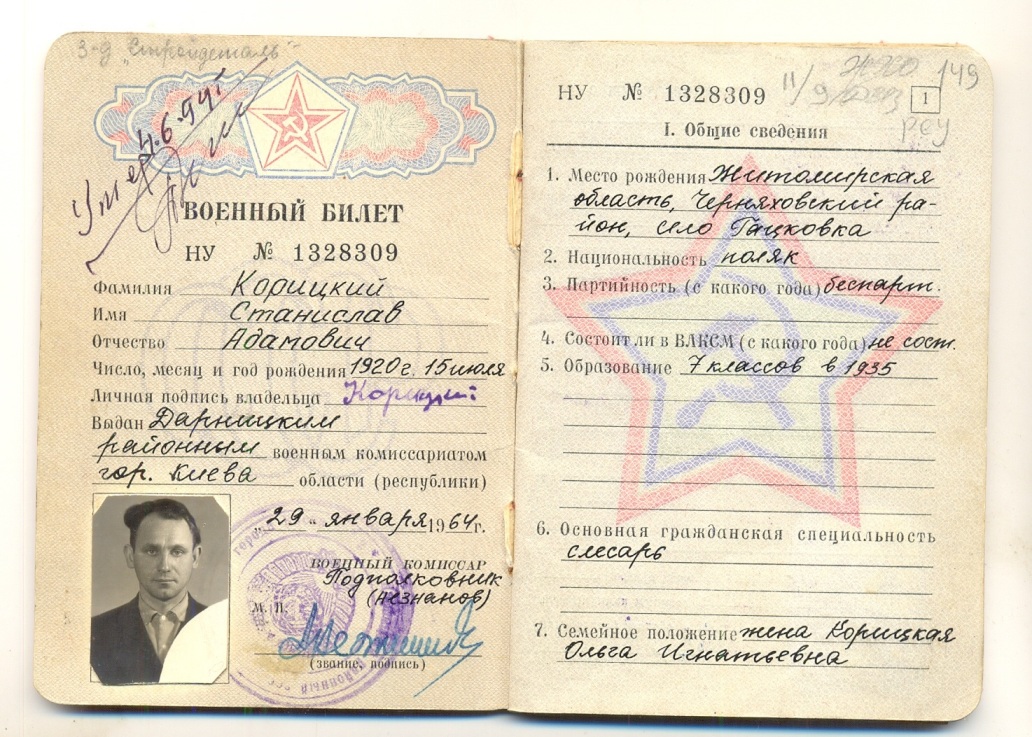 з-д „Стройдеталь"
Умер 4.6.94г
ВОЕННЫЙ БИЛЕТ
НУ № 1328309
Фамилия Корицкий
Имя Станислав
Отчество Адамович
Число, месяц и год рождения 1920г. 15 июля
Личная подпись владельца Корицкий
Выдан Дарницким
районным военным комиссариатом
гор. Киева области (республики)
„29" января 1964г.
ВОЕННЫЙ КОМИССАР
Подполковник
(Незнанов)
М. П.
(звание, подпись)
НУ № 1328309
149
1
РСУ
I. Общие сведения
1. Место рождения Житомирская
область, Черняховский ра-
йон, село Гацковка
2. Национальность поляк
3. Партийность (с какого года) беспарт.
4. Состоит ли в ВЛКСМ (с какого года) не сост.
5. Образование 7 классов в 1935
6. Основная гражданская специальность
слесарь
7. Семейное положение жена Корицкая
Ольга Игнатьевна